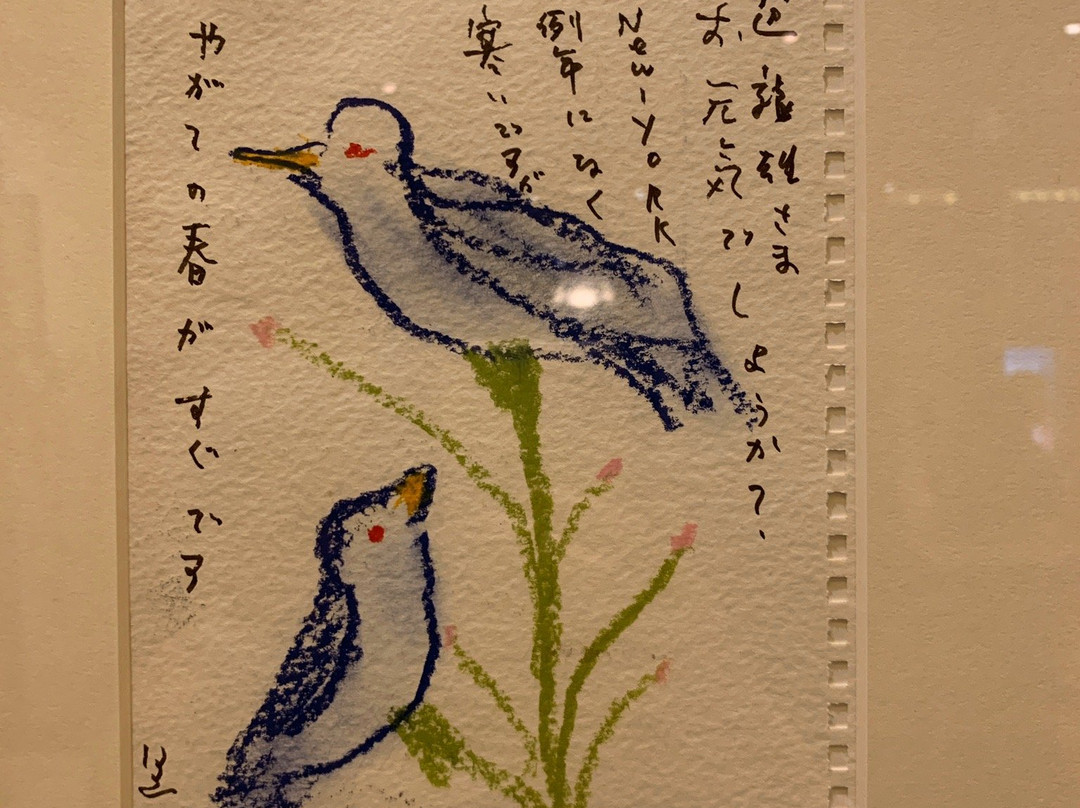 龍雄さま
お元気でしようか?
New-YoRK
例年になく
寒いですが
やがての春がすぐです